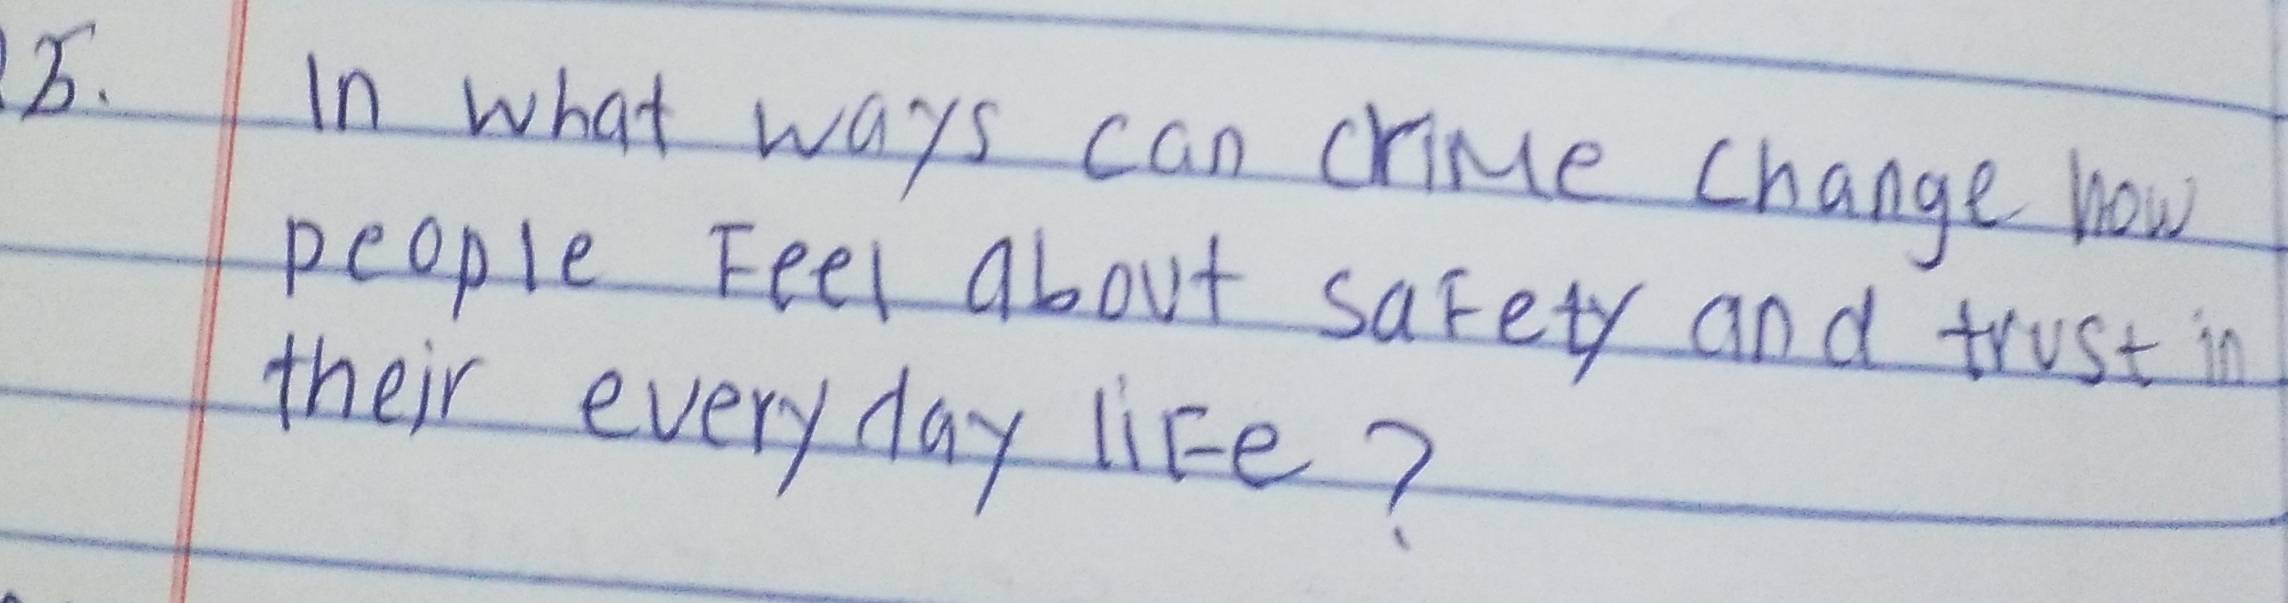 5. In what ways can crime change how
people Feel about safety and trust in
their everyday life?